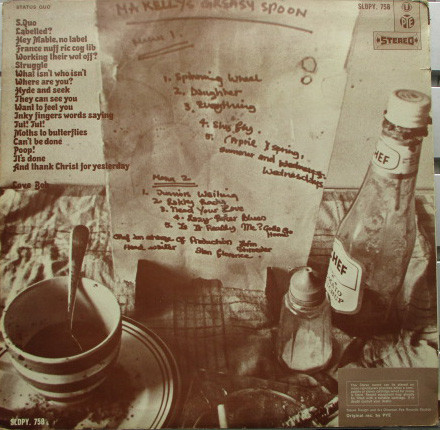 STATUS QUO
S.Quo
Labelled?
Hey Mable, no label
France nuff ric cog lib
Working their wot off?
Struggle
What isn't who isn't
Where are you?
Hyde and seek
They can see you
Want to feel you
Inky fingers words saying
Tut! Tut!
Moths to butterflies
Can't be done
Poop!
It's done
And thank Christ for yesterday
Love Bob
MA KELLYS GREASY SPOON
Menu 1.
1. Spinning Wheel
2. Daughter
3. Everything
4. Shy Fly.
5. April, Spring,
Summer and Wednesdays
Menu 2.
1. Junior's Wailing
2. Lakky Lady
3. Need Your Love
4. Lazy Poker Blues
5. Is It Really Me? Gotta Go
Home
Chef in charge of Production John
Schroeder
Head waiter Alan Florence.
SLDPY. 758
PYE
STEREO
HEF
CHEF
SLDPY. 758